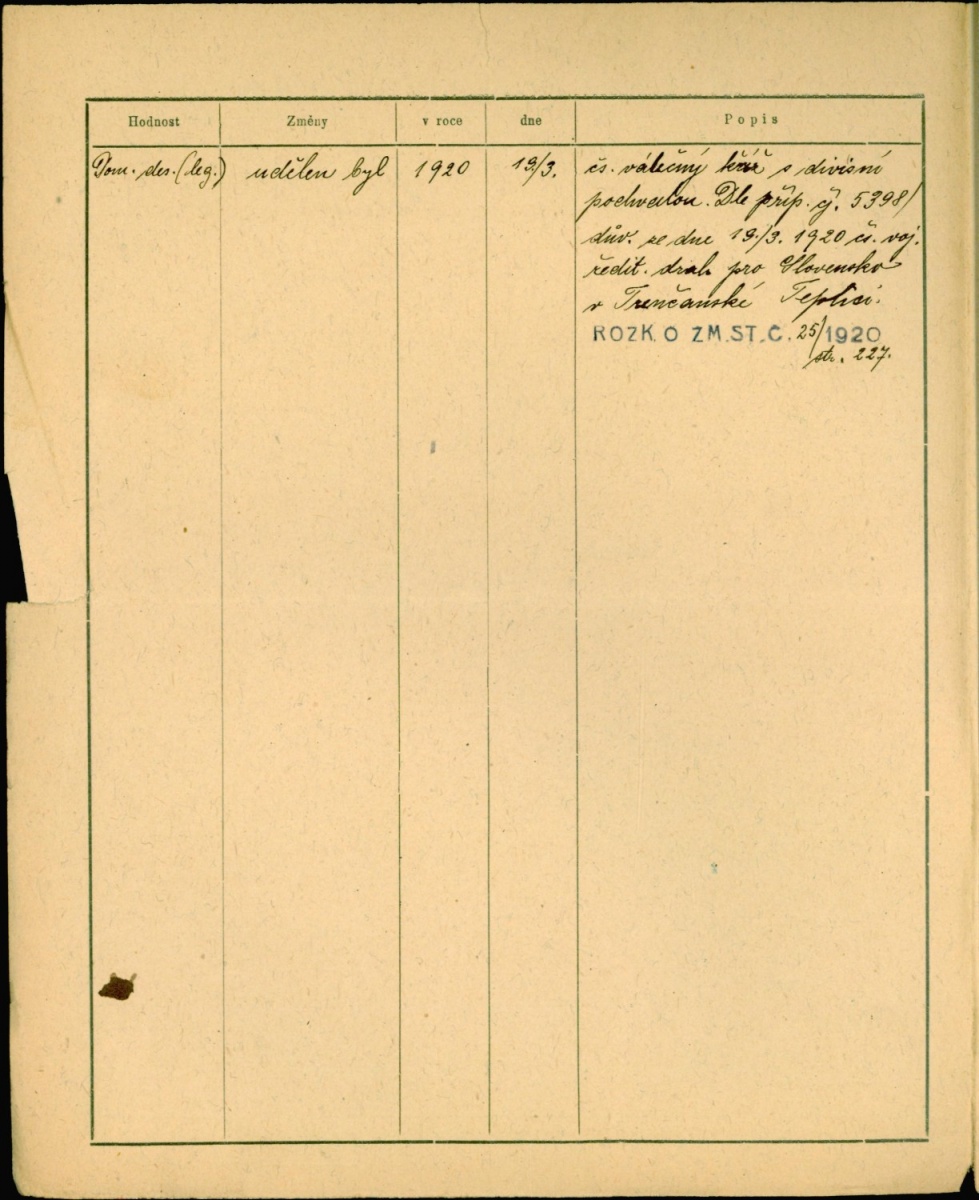 Hodnost Změny v roce dne Popis
Dom. des. (leg.) udělen byl 1920 19/3. čs. válečný kříž s divisní
pochvalou. Dle příp. čj. 5398/
dův. ze dne 19./3. 1920 čs. voj.
ředit. drah pro Slovensko
v Trenčanské Teplici.
ROZK. O ZM. ST. Č. 25/1920
str. 227.